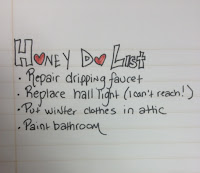 HONEY DO LIST
• Repair dripping faucet
• Replace hall light (I can't reach!)
• Put winter clothes in attic
• Paint bathroom